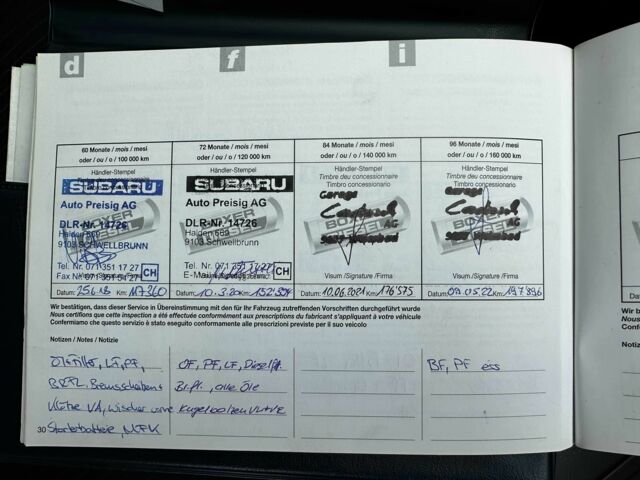 d
f
i
60 Monate / mois / mesi
oder / ou / o / 100 000 km
Händler-Stempel
SUBARU
Auto Preisig AG
DLR-Nr. 14726
Halden 689
9103 SCHWELLBRUNN
Tel. Nr. 071 351 17 27
Fax Nr. 071 351 54 27
CH
Datum: 25.6.18 Km: 117360
72 Monate / mois / mesi
oder / ou / o / 120 000 km
Händler-Stempel
SUBARU
Auto Preisig AG
DLR-Nr. 14726
Halden 689
9103 Schwellbrunn
Tel. Nr. 071 351 17 27
CH
Datum: 10.3.20 Km:
84 Monate / mois / mesi
oder / ou / o / 140 000 km
Händler-Stempel
Timbre des concessionnaire
Timbro concessionario
Garage
AG
BOXER DIESEL
Visum /Signature /Firma
Datum: 10.06.2021 Km: 176'575
96 Monate / mois / mesi
oder / ou / o / 160 000 km
Händler-Stempel
Timbre des concessionnaire
Timbro concessionario
Garage
AG
BOXER DIESEL
Visum /Signature /Firma
Datum: 05.22 Km: 197'896
Wir bestätigen, dass dieser Service in Übereinstimmung mit den für Ihr Fahrzeug zutreffenden Vorschriften durchgeführt wurde
Nous certifions que cette inspection a été effectuée conformément aux prescriptions du fabricant s'appliquant à votre véhicule
Confermiamo che questo servizio è stato eseguito conformemente alle prescrizioni previste per il suo veicolo
Notizen / Notes / Notizie
Ölfilter, LF, PF,
Bremsscheiben
VA, Wischer vorne
Starterbatterie, MFK
OF, PF, LF, Dieself.
Br.fl., alle Öle
Kugelbolzen
BF, PF
30